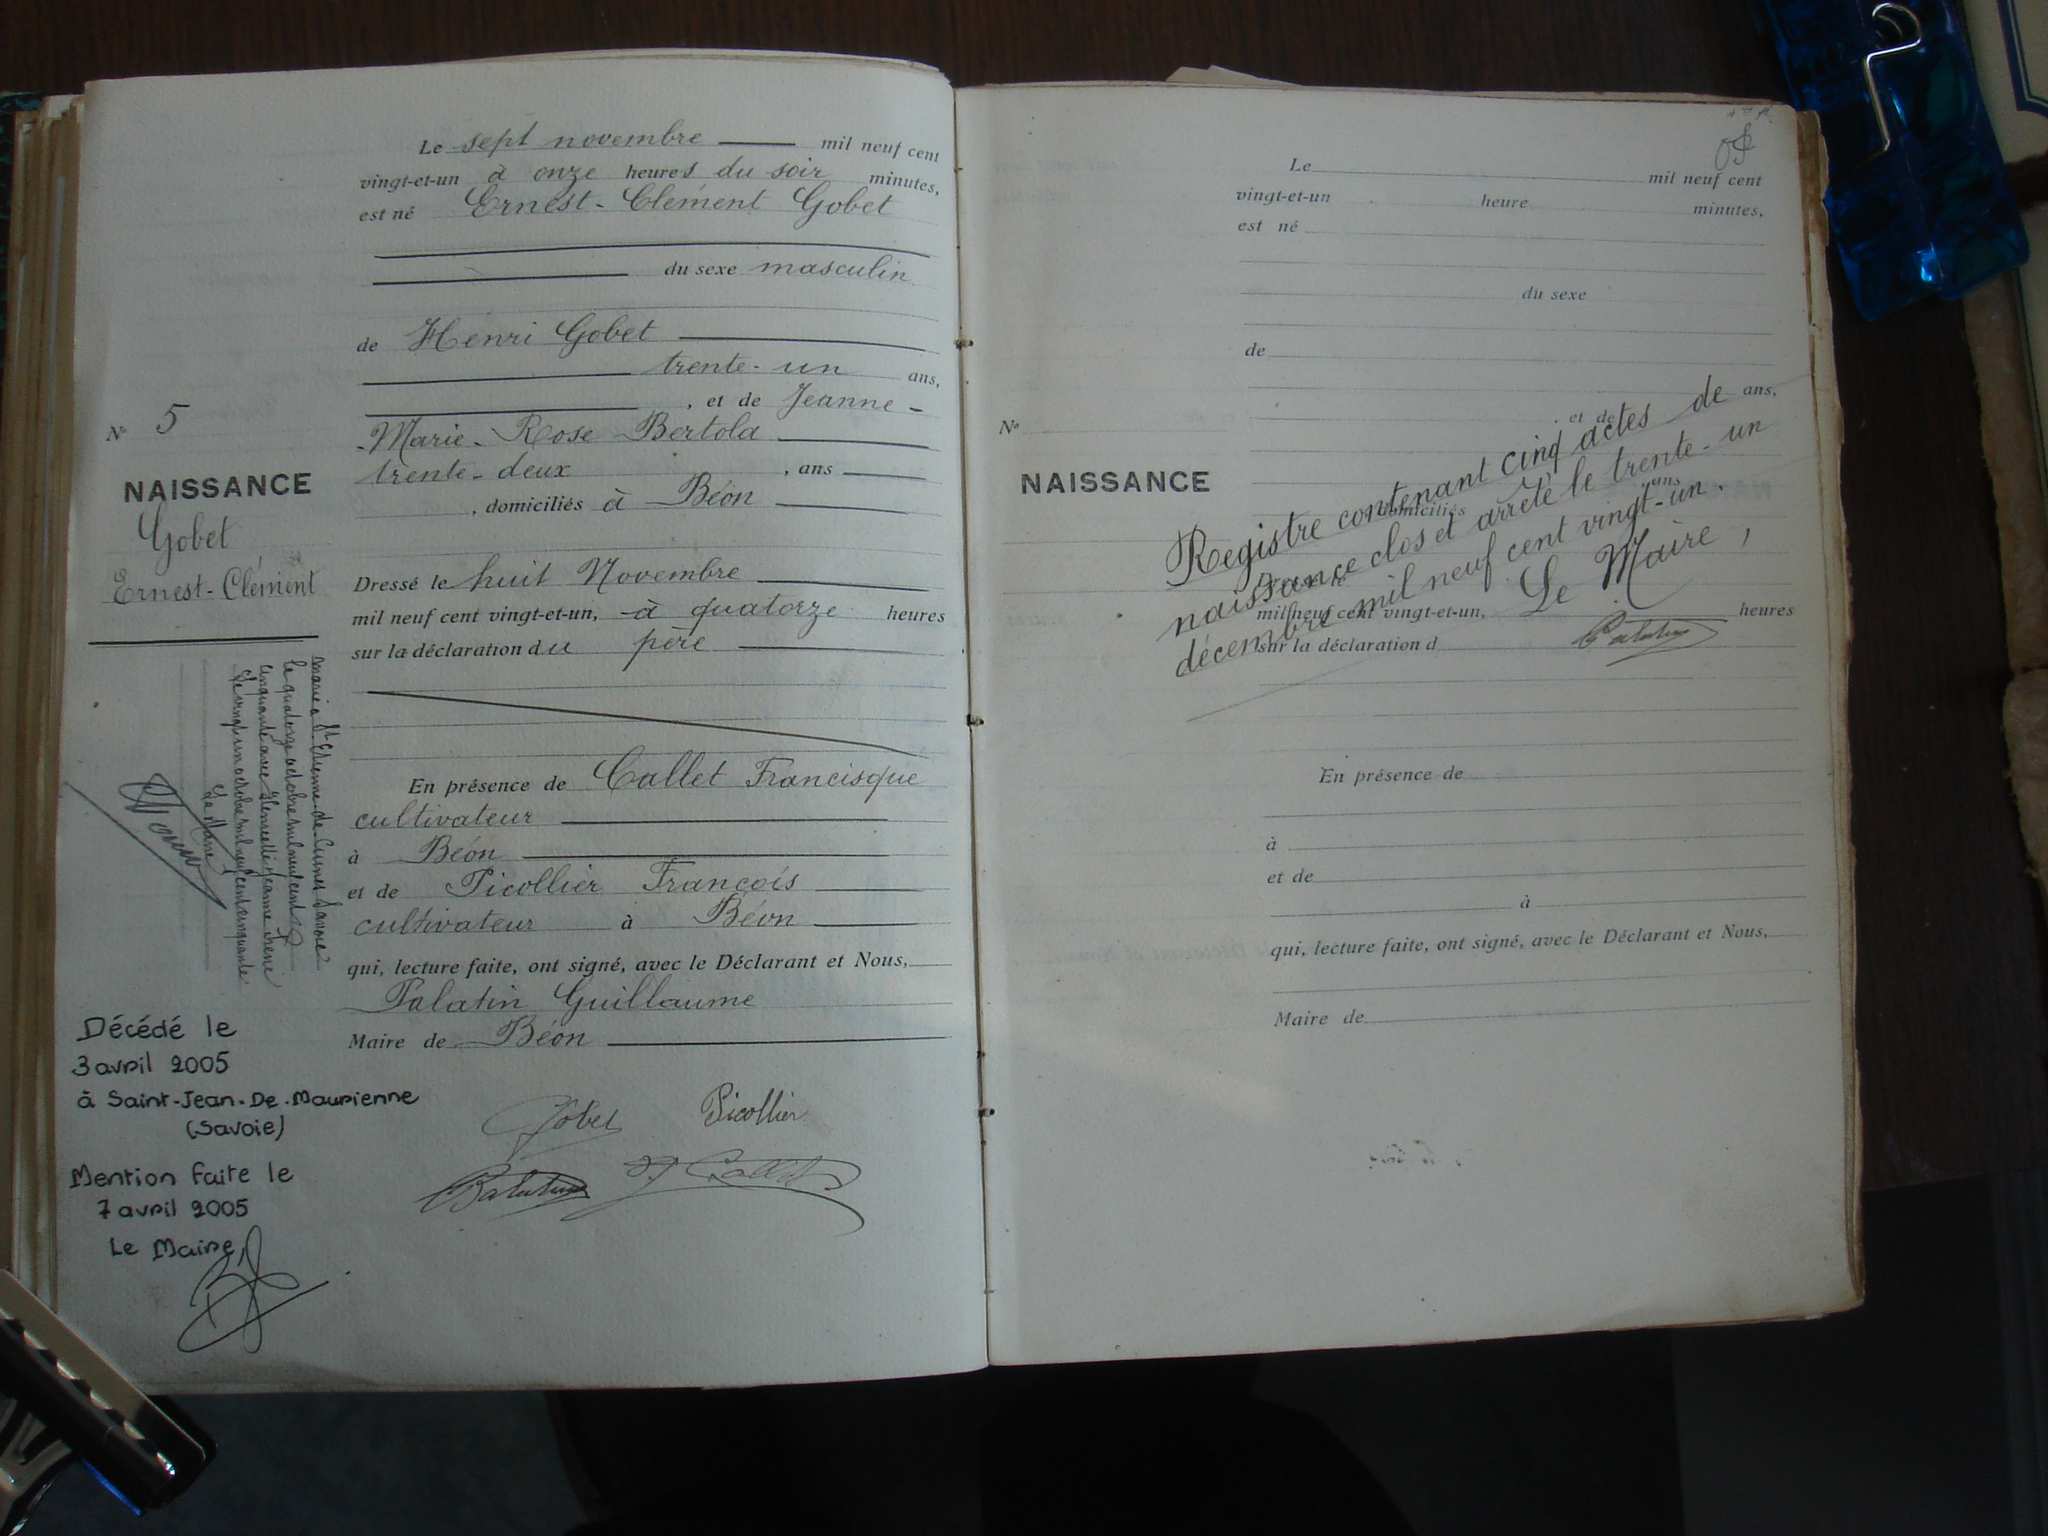 Le sept novembre mil neuf cent
vingt-et-un à onze heures du soir minutes,
est né Ernest-Clément Gobet
du sexe masculin
de Henri Gobet
trente-un ans,
, et de Jeanne-
-Marie-Rose Bertola
trente-deux , ans
, domiciliés à Béon
Dressé le huit Novembre
mil neuf cent vingt-et-un, à quatorze heures
sur la déclaration du père
En présence de Callet Francisque
cultivateur
à Béon
et de Picollier François
cultivateur à Béon
qui, lecture faite, ont signé, avec le Déclarant et Nous,
Palatin Guillaume
Maire de Béon
Gobet Picollier
Palatin Callet
No 5
NAISSANCE
Gobet
Ernest-Clément
Marié à St Etienne-de-Cuines Savoie
le quatorze octobre mil neuf cent
cinquante avec Jeanne
Le vingt un octobre mil neuf cent cinquante
Le Maire
Décédé le
3 avril 2005
à Saint-Jean-De-Maurienne
(Savoie)
Mention faite le
7 avril 2005
Le Maire,
Le mil neuf cent
vingt-et-un heure minutes,
est né
du sexe
de
ans,
et de
ans
domiciliés
Dressé le
mil neuf cent vingt-et-un, heures
sur la déclaration d
En présence de
à
et de
à
qui, lecture faite, ont signé, avec le Déclarant et Nous,
Maire de
No
NAISSANCE
Registre contenant cinq actes de
naissance clos et arrêté le trente-un
décembre mil neuf cent vingt-un.
Le Maire,
Palatin